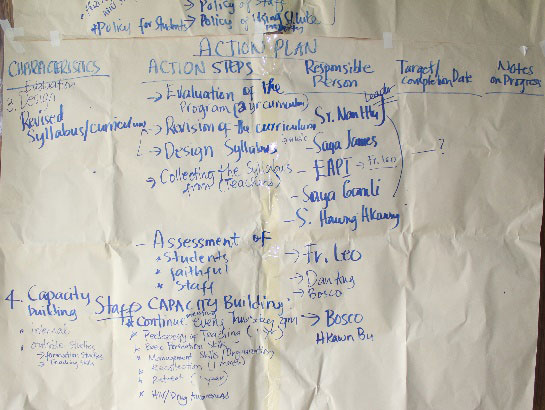 → Policy of staff
*Policy for students → Policy of using Sylabi
ACTION PLAN
CHARACTERISTICS
ACTION STEPS
Responsible Person
Target/ Completion Date
Notes on Progress
Evaluation
3. Design
Revised
Syllabus/curriculum
→ Evaluation of the
Program (
→ Revision of the curriculum
→ Design Syllabus
→ Collecting the Syllabus
from (Teachers)
Leader
Sr. Nan Htly
- Saya James
- EAPI → Fr. Leo
- Saya Gamli
- S. Hawng Hkawng
→ ?
- Assessment of
* Students
* faithful
* Staff
→ Fr. Leo
→ Dau
→ Bosco
4. Capacity
building
* internal
* outside Studies
→ Formation Studies
Staff CAPACITY Building:
* Continue every Thursday 2pm
* Pedagogy of Teaching
* Basic Formation Skills
* Management Skills
* recollection (
* Retreat (
* HIV/Drug Awareness
→ Bosco
Hkawn Bu